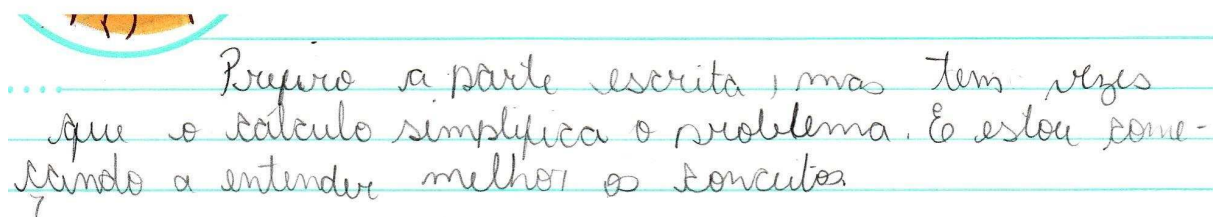 Prefiro a parte escrita, mas tem vezes
que o cálculo simplifica o problema. E estou come-
çando a entender melhor os conceitos.